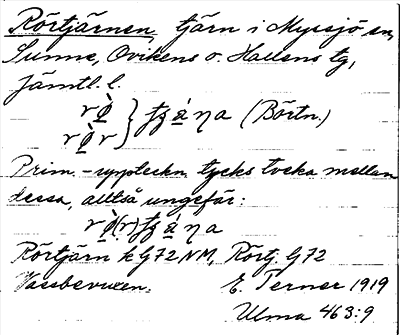 Rörtjärnen, tjärn i Myssjö sn,
Sunne, Ovikens o. Hallens tg,
Jämtl. l.
rø̀ } tʒ á η a (Börtn.)
rø̀r
Prim.-uppteckn. tycks tveka mellan
dessa, alltså ungefär:
rø̀(r)tʒ á η a
Rörtjärn k G72 NM, Rörtj. G72
Vassbevuxen.
E. Terner 1919
Ulma 463:9